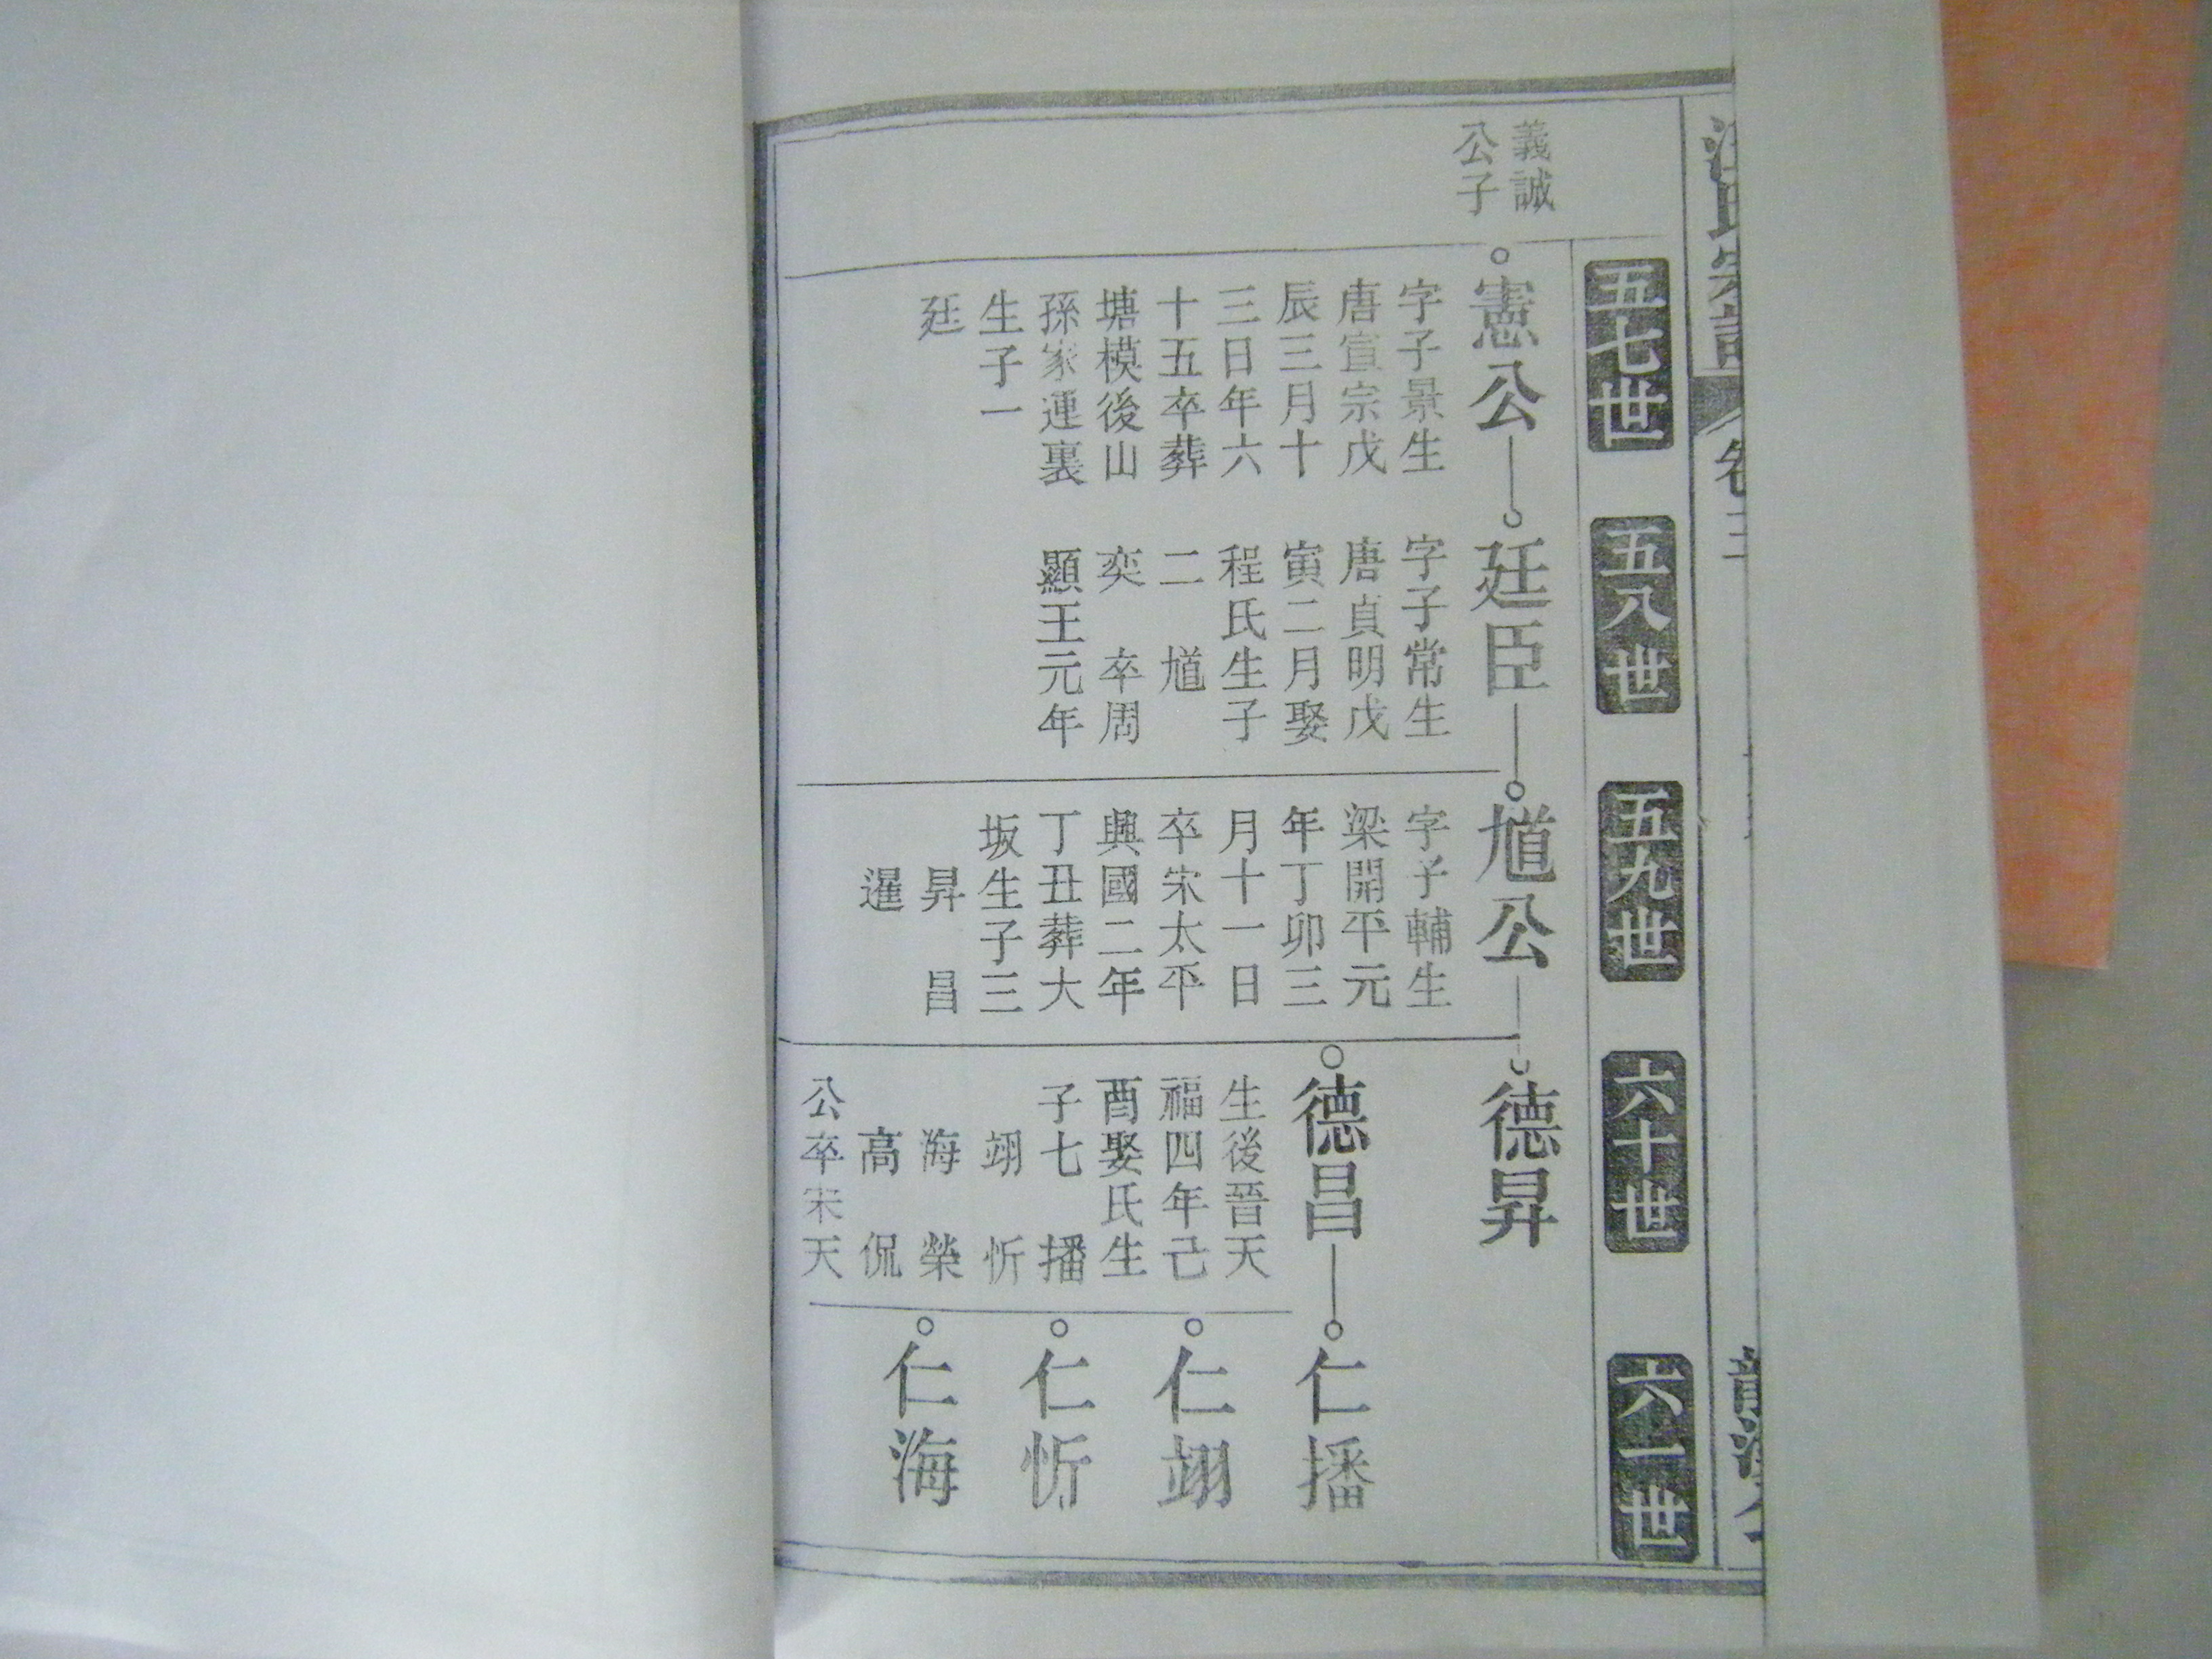 汪氏宗譜
卷三
五七世
五八世
五九世
六十世
六一世
義誠
公子
憲公
字子景生
唐宣宗戊
辰三月十
三日年六
十五卒葬
塘模後山
孫家連裏
生子一
廷
廷臣
字子常生
唐貞明戊
寅二月娶
程氏生子
二 馗
奕 卒周
顯王元年
馗公
字子輔生
梁開平元
年丁卯三
月十一日
卒宋太平
興國二年
丁丑葬大
坂生子三
昇 昌
暹
德昇
德昌
生後晉天
福四年己
酉娶氏生
子七 播
翊 忻
海 榮
高 侃
公卒宋天
仁播
仁翊
仁忻
仁海